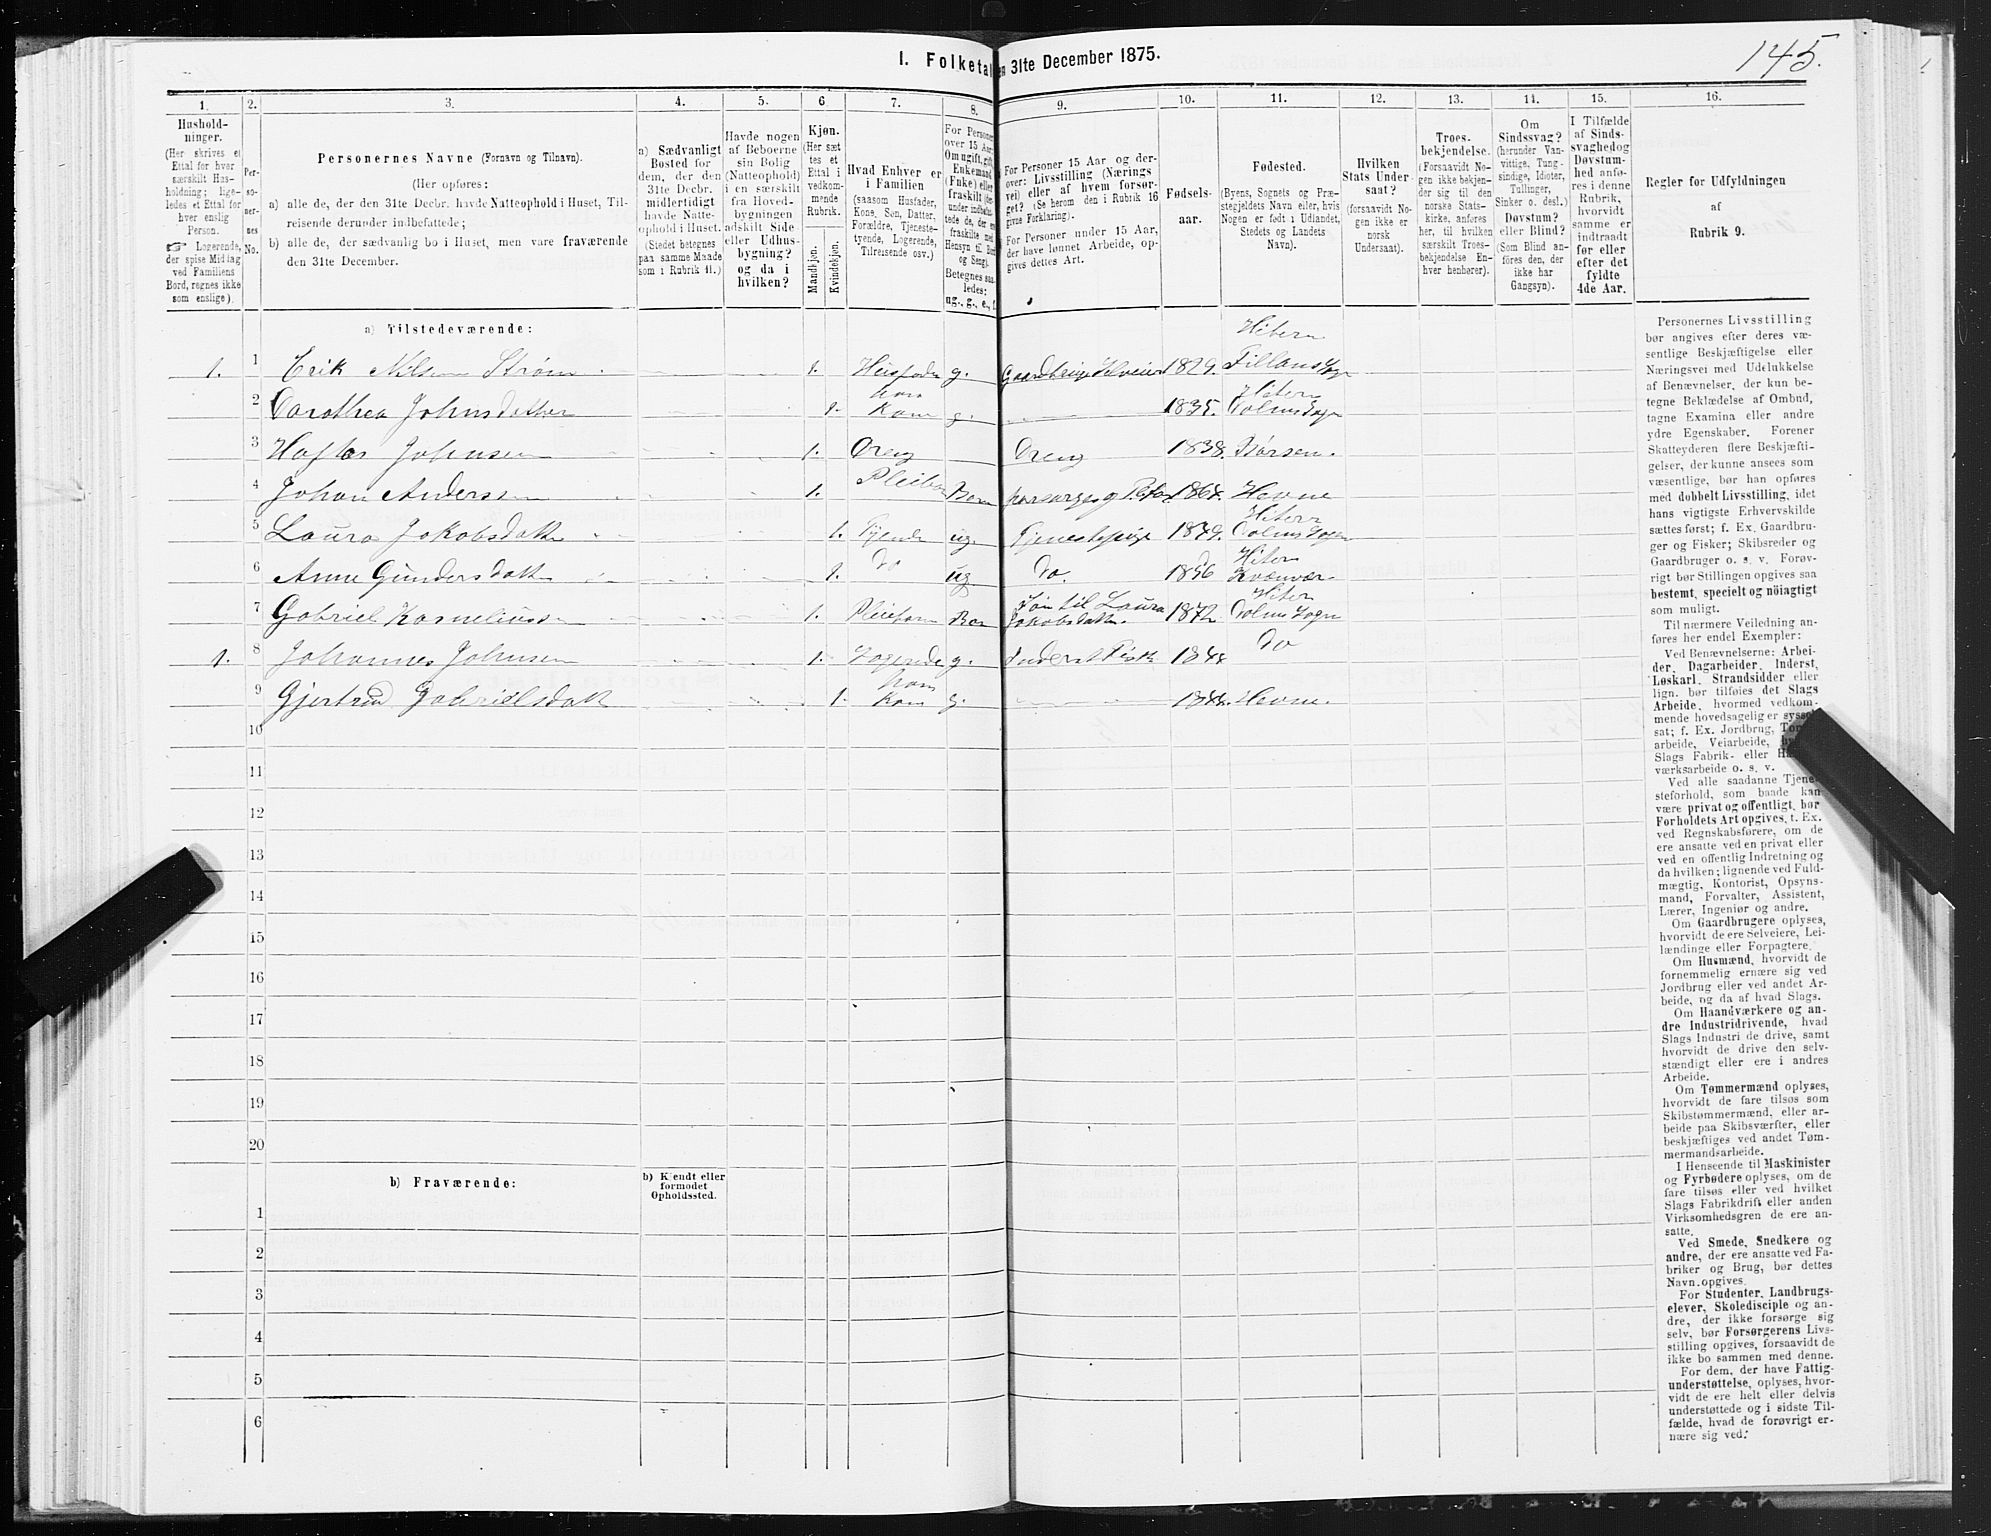 145.
I. Folketal
en 31te December 1875.
1. 2. 3. 4. 5. 6. 7. 8. 9. 10. 11. 12. 13. 14. 15. 16.
Hushold-
ninger.
(Her skrives et
Ettal for hver
særskilt Hus-
holdning; lige-
ledes et Ettal for
hver enslig
Person.
☞ Logerende,
der spise Midtag
ved Familiens
Bord, regnes ikke
som enslige).
Per-
so-
ner-
nes
No.
Personernes Navne (Fornavn og Tilnavn).
(Her opføres:
a) alle de, der den 31te Decbr. havde Natteophold i Huset, Til-
reisende derunder indbefattede;
b) alle de, der sædvanlig bo i Huset, men vare fraværende
den 31te December.
a) Sædvanligt
Bosted for
dem, der den
31te Decbr.
midlertidigt
havde Natte-
ophold i Huset.
(Stedet betegnes
paa samme Maade
som i Rubrik 11.)
Havde nogen
af Beboerne
sin Bolig
(Natteophold)
i en særskilt
fra Hoved-
bygningen
adskilt Side-
eller Udhus-
bygning?
og da i
hvilken?
Kjøn.
(Her sæt
tes et
Ettal i
vedkom-
mende
Rubrik.
Mandkjøn.
Kvindekjøn.
Hvad Enhver er
i Familien
(saasom Husfader,
Kone, Søn, Datter,
Forældre, Tjeneste-
tyende, Logerende,
Tilreisende osv.)
For Person
over 15 Aar
Om ugift, gift,
Enkemand
(Enke) eller
fraskilt
Hensyn til
og Seng).
Betegnes saa-
ledes:
ug., g., e.,
For Personer 15 Aar og der-
over: Livsstilling (Nærings
vei) eller af hvem forsør-
get? (Se herom den i Rubrik 16
givne Forklaring).
For Personer under 15 Aar,
der have lønnet Arbeide, op-
gives dettes Art.
Fødsels-
aar.
Fødested.
(Byens, Sognets og Præ-
stegjeldets Navn eller, hvis
Nogen er født i Udlandet,
Stedets og Landets
Navn).
Hvilken
Stats Under
saat?
(forsaavidt No-
gen ikke er
norsk
Undersaat).
Troes-
bekjendelse.
(Forsaavidt No-
gen ikke bekjen-
der sig til den
norske Stats-
kirke, anføres
her, til hvilken
særskilt Troes-
bekjendelse En-
hver henhører).
Om
Sindssvag?
(herunder Van-
vittige, Tung-
sindige, Idioter,
Tullinger,
Sinker o. desl.)
Døvstum?
eller Blind?
(Som Blind an-
føres den, der
ikke har
Gangsyn).
I Tilfælde
af Sinds-
svaghed og
Døvstum-
hed anfø-
res i denne
Rubrik,
hvorvidt
samme er
indtraadt
før eller
efter det
fyldte
4de Aar.
Regler for Udfyldningen
af
Rubrik 9.
a) Tilstedeværende:
Hitern
1. 1 Erik Nilsen Strøm 1. Husfader g. Gaardbruger Selveier 1829. Fillan Sogn
Hitern
2 Dorothea Johnsdatter 1. Kone g. 1835. Dolms Sogn
3 Johnsen 1. Dreng Dreng 1838. Børsen.
4 Johan Anderssen 1. Pleiebarn 1864. Hevne
Hitern
5 Laura Jakobsdatter 1. Tjener ug. Tjenestepige 1849. Dolms Sogn
Hitern
6 Anne Gundersdatter 1. do ug. do. 1856 Kvænvær
Hitern
7 Gabriel Korneliussen 1. Pleiebarn Søn til Laura
Jakobsdatter. 1872 Dolms Sogn
1. 8 Johannes Johnsen 1. Logerende g. 1844 do
hans
9 Gjertrud Gabrielsdatter 1. Kone g. 1844. Hevne.
10
11
12
13
14
15
16
17
18
19
20
b) Fraværende:
b) Kjendt eller
formodet
Opholdssted.
1
2
3
4
5
6
Personernes Livsstilling
bør angives efter deres væ-
sentlige Beskjæftigelse eller
Næringsvei med Udelukkelse
af Benævnelser, der kun be-
tegne Beklædelse af Ombud,
tagne Examina eller andre
ydre Egenskaber. Forener
Skatteyderen flere Beskjæfti-
gelser, der kunne ansees som
væsentlige, bør han opføres
med dobbelt Livsstilling, idet
hans vigtigste Erhvervskilde
sættes først; f. Ex. Gaardbru-
ger og Fisker; Skibsreder og
Gaardbruger o. s. v. Forøv-
rigt bør Stillingen opgives saa
bestemt, specielt og nöiagtigt
som muligt.
Til nærmere Veiledning an-
føres her endel Exempler:
Ved Benævnelserne: Arbei-
der, Dagarbeider, Inderst,
Løskarl, Strandsidder eller
lign. bør tilføies det Slags
Arbeide, hvormed vedkom-
mende hovedsagelig er syssel
sat; f. Ex. Jordbrug, Tom
arbeide, Veiarbeide,
Slags Fabrik- eller
værksarbeide o. s. v.
Ved alle saadanne Tjene-
steforhold, som baade kan
være privat og offentligt, bør
Forholdets Art opgives, t. Ex.
ved Regnskabsførere, om de
ere ansatte ved en privat eller
ved en offentlig Indretning og
da hvilken; lignende ved Fuld-
mægtig, Kontorist, Opsyns-
mand, Forvalter, Assistent,
Lærer, Ingeniør og andre.
Om Gaardbrugere oplyses,
hvorvidt de ere Selveiere, Lei-
lændinge eller Forpagtere.
Om Husmænd, hvorvidt de
fornemmelig ernære sig ved
Jordbrug eller ved andet Ar-
beide, og da af hvad Slags.
Om Haandværkere og an-
dre Industridrivende, hvad
Slags Industri de drive, samt
hvorvidt de drive den selv-
stændigt eller ere i andres
Arbeide.
Om Tømmermænd oplyses,
hvorvidt de fare tilsøs som
Skibstømmermænd, eller ar-
beide paa Skibsværfter, eller
beskjæftiges ved andet Tøm-
mermandsarbeide.
I Henseende til Maskinister
og Fyrbødere oplyses, om de
fare tilsøs eller ved hvilket
Slags Fabrikdrift eller anden
Virksomhedsgren de ere an-
satte.
Ved Smede, Snedkere og
andre, der ere ansatte ved Fa-
briker og Brug, bør dettes
Navn opgives.
For Studenter, Landbrugs-
elever, Skoledisciple og an-
dre, der ikke forsørge sig
selv, bør Forsørgerens Livs-
stilling opgives, forsaavidt de
ikke bo sammen med denne.
For dem, der have Fattig-
understøttelse, oplyses, hvor-
vidt de ere helt eller delvis
understøttede og i sidste Til-
fælde, hvad de forøvrigt er-
nære sig ved.